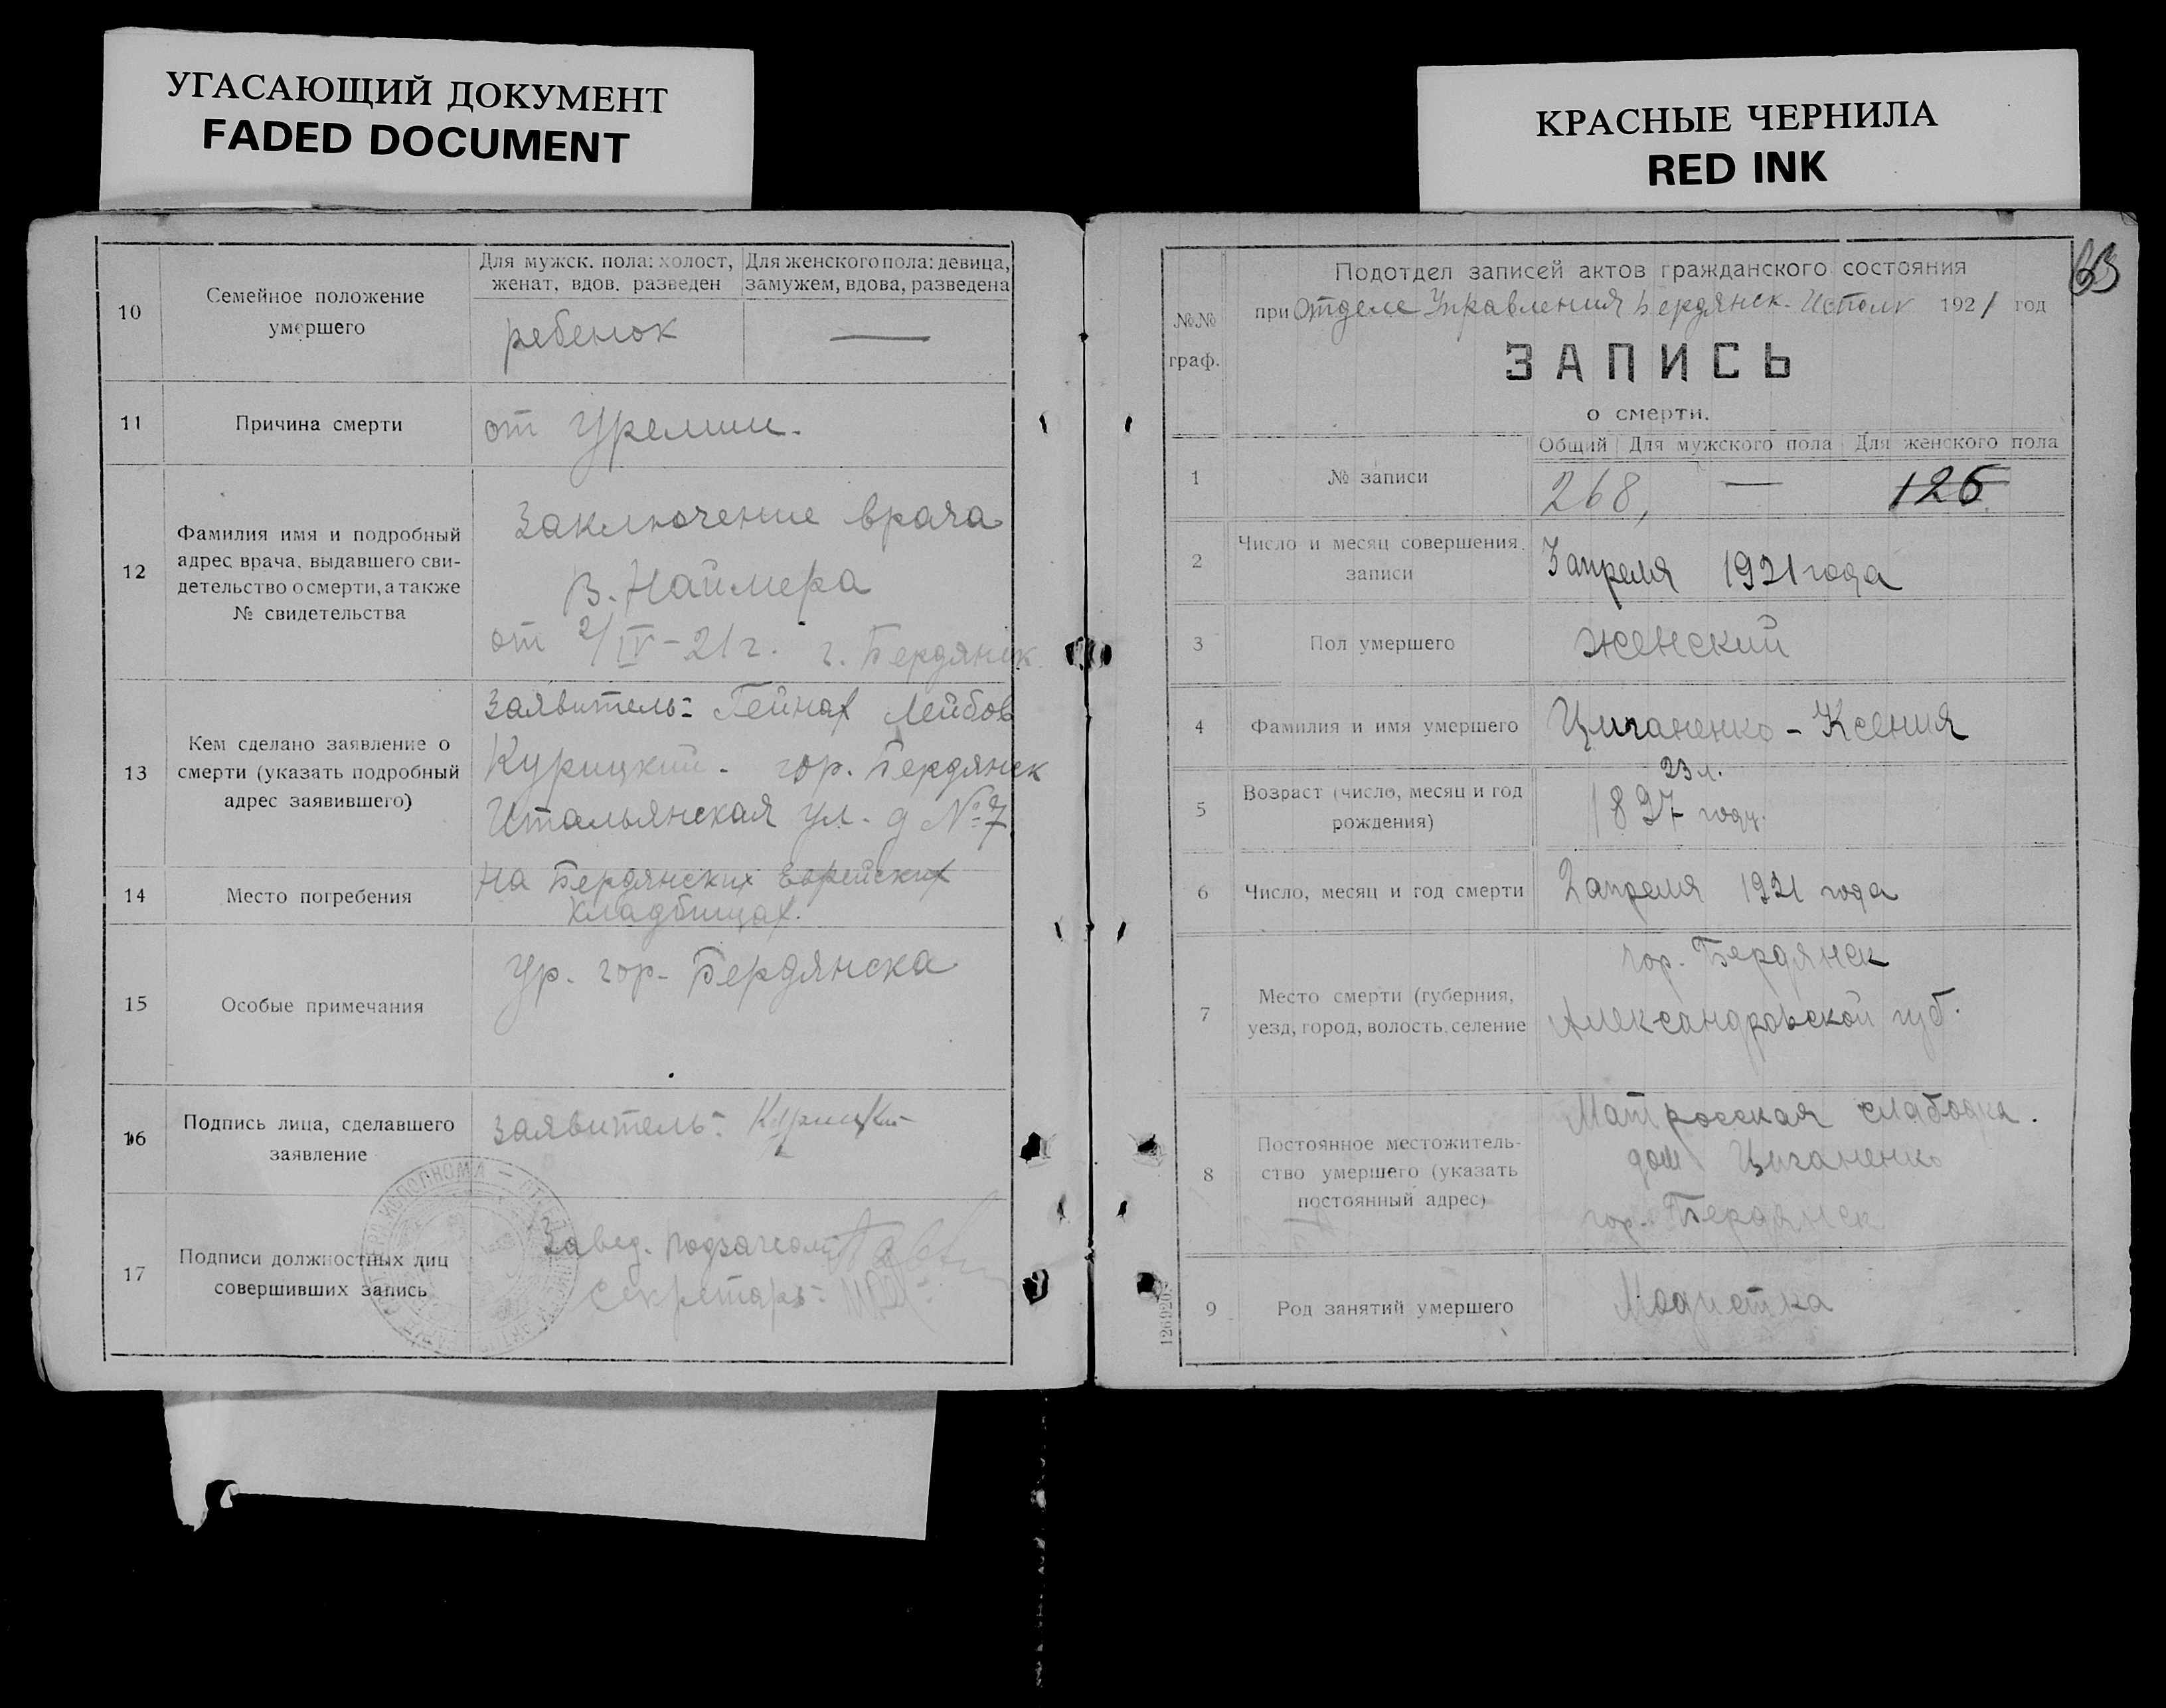 УГАСАЮЩИЙ ДОКУМЕНТ
FADED DOCUMENT
10
Семейное положение
умершего
Для мужск. пола: холост,
женат, вдов. разведен
Для женского пола: девица,
замужем, вдова, разведена
ребенок
—
11
Причина смерти
от Уремии.
12
Фамилия имя и подробный
адрес врача, выдавшего сви-
детельство о смерти, а также
№ свидетельства
Заключение врача
В. Наймера
от 2/IV-21 г. г. Бердянск
13
Кем сделано заявление о
смерти (указать подробный
адрес заявившего)
Заявитель: Гейнах Лейбов
Курицкий - гор. Бердянск
Итальянская ул. д № 7
14
Место погребения
На Бердянских Еврейских
кладбищах.
15
Особые примечания
Ур. гор. Бердянска
16
Подпись лица, сделавшего
заявление
заявитель: Курицкий
17
Подписи должностных лиц
совершивших запись
Завед. подзагсом
Секретарь:
КРАСНЫЕ ЧЕРНИЛА
RED INK
63
№№
граф.
Подотдел записей актов гражданского состояния
при Отделе Управления Бердянск. Исполк 1921 год
ЗАПИСЬ
о смерти.
Общий Для мужского пола Для женского пола
1
№ записи
268, — 126
2
Число и месяц совершения
записи
3 апреля 1921 года
3
Пол умершего
женский
4
Фамилия и имя умершего
Цыганенко - Ксения
5
Возраст (число, месяц и год
рождения)
23 л.
1897 году.
6
Число, месяц и год смерти
2 апреля 1921 года
7
Место смерти (губерния,
уезд, город, волость, селение
гор. Бердянск
Александровской губ.
8
Постоянное местожитель-
ство умершего (указать
постоянный адрес)
Матросская слабодка.
дом Цыганенко
гор. Бердянск
9
Род занятий умершего
Модистка